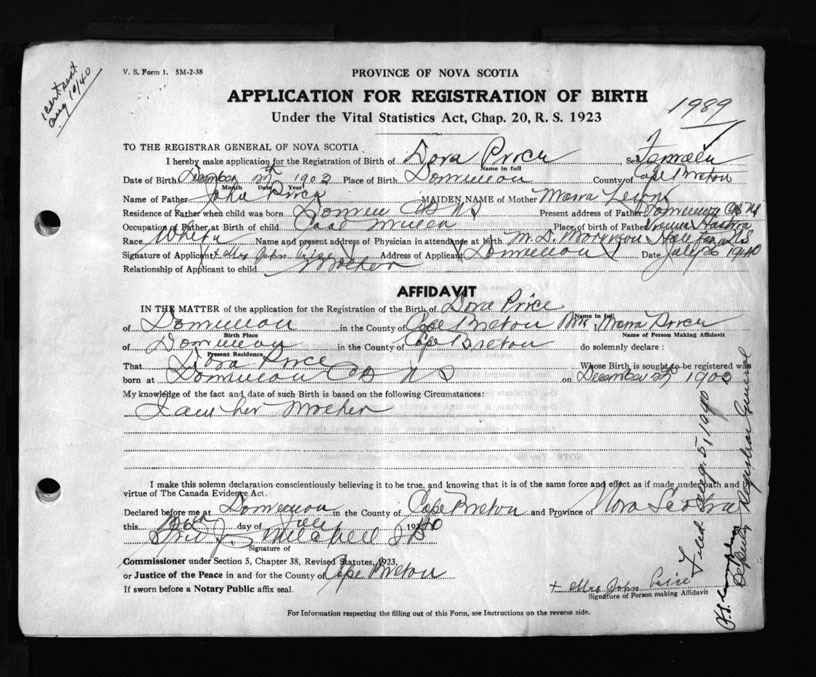 cert sent
aug 10/40
V. S. Form 1. 5M-2-38
PROVINCE OF NOVA SCOTIA
APPLICATION FOR REGISTRATION OF BIRTH
Under the Vital Statistics Act, Chap. 20, R. S. 1923
1989
TO THE REGISTRAR GENERAL OF NOVA SCOTIA
I hereby make application for the Registration of Birth of Dora Price Sex Female
Name in full
Date of Birth December 1902 Place of Birth Dominion County of Cape Breton
Month Date Year
Name of Father John Price MAIDEN NAME of Mother
Residence of Father when child was born Dominion CB NS Present address of Father Dominion CB NS
Occupation of Father at Birth of child Coal Place of birth of Father
Race White Name and present address of Physician in attendance at birth M. D. Morrison Halifax NS
Signature of Applicant + Mrs John Price Address of Applicant Dominion Date July 26 1940
Relationship of Applicant to child Mother
AFFIDAVIT
IN THE MATTER of the application for the Registration of the Birth of Dora Price
Name in full
of Dominion in the County of Cape Breton Mrs Price
Birth Place Name of Person Making Affidavit
of Dominion in the County of Cape Breton do solemnly declare:
Present Residence
That Dora Price Whose Birth is sought to be registered was
born at Dominion CB NS on December 1902
My knowledge of the fact and date of such Birth is based on the following Circumstances:
I am her Mother
I make this solemn declaration conscientiously believing it to be true, and knowing that it is of the same force and effect as if made under oath and by
virtue of The Canada Evidence Act.
Declared before me at Dominion in the County of Cape Breton and Province of Nova Scotia
this 26th day of July 1940
Mitchell
Signature of
Commissioner under Section 5, Chapter 38, Revised Statutes, 1923.
or Justice of the Peace in and for the County of Cape Breton
If sworn before a Notary Public affix seal.
+ Mrs John Price
Signature of Person making Affidavit
For Information respecting the filling out of this Form, see Instructions on the reverse side.
Filed Aug. 5, 1940
Deputy Registrar General